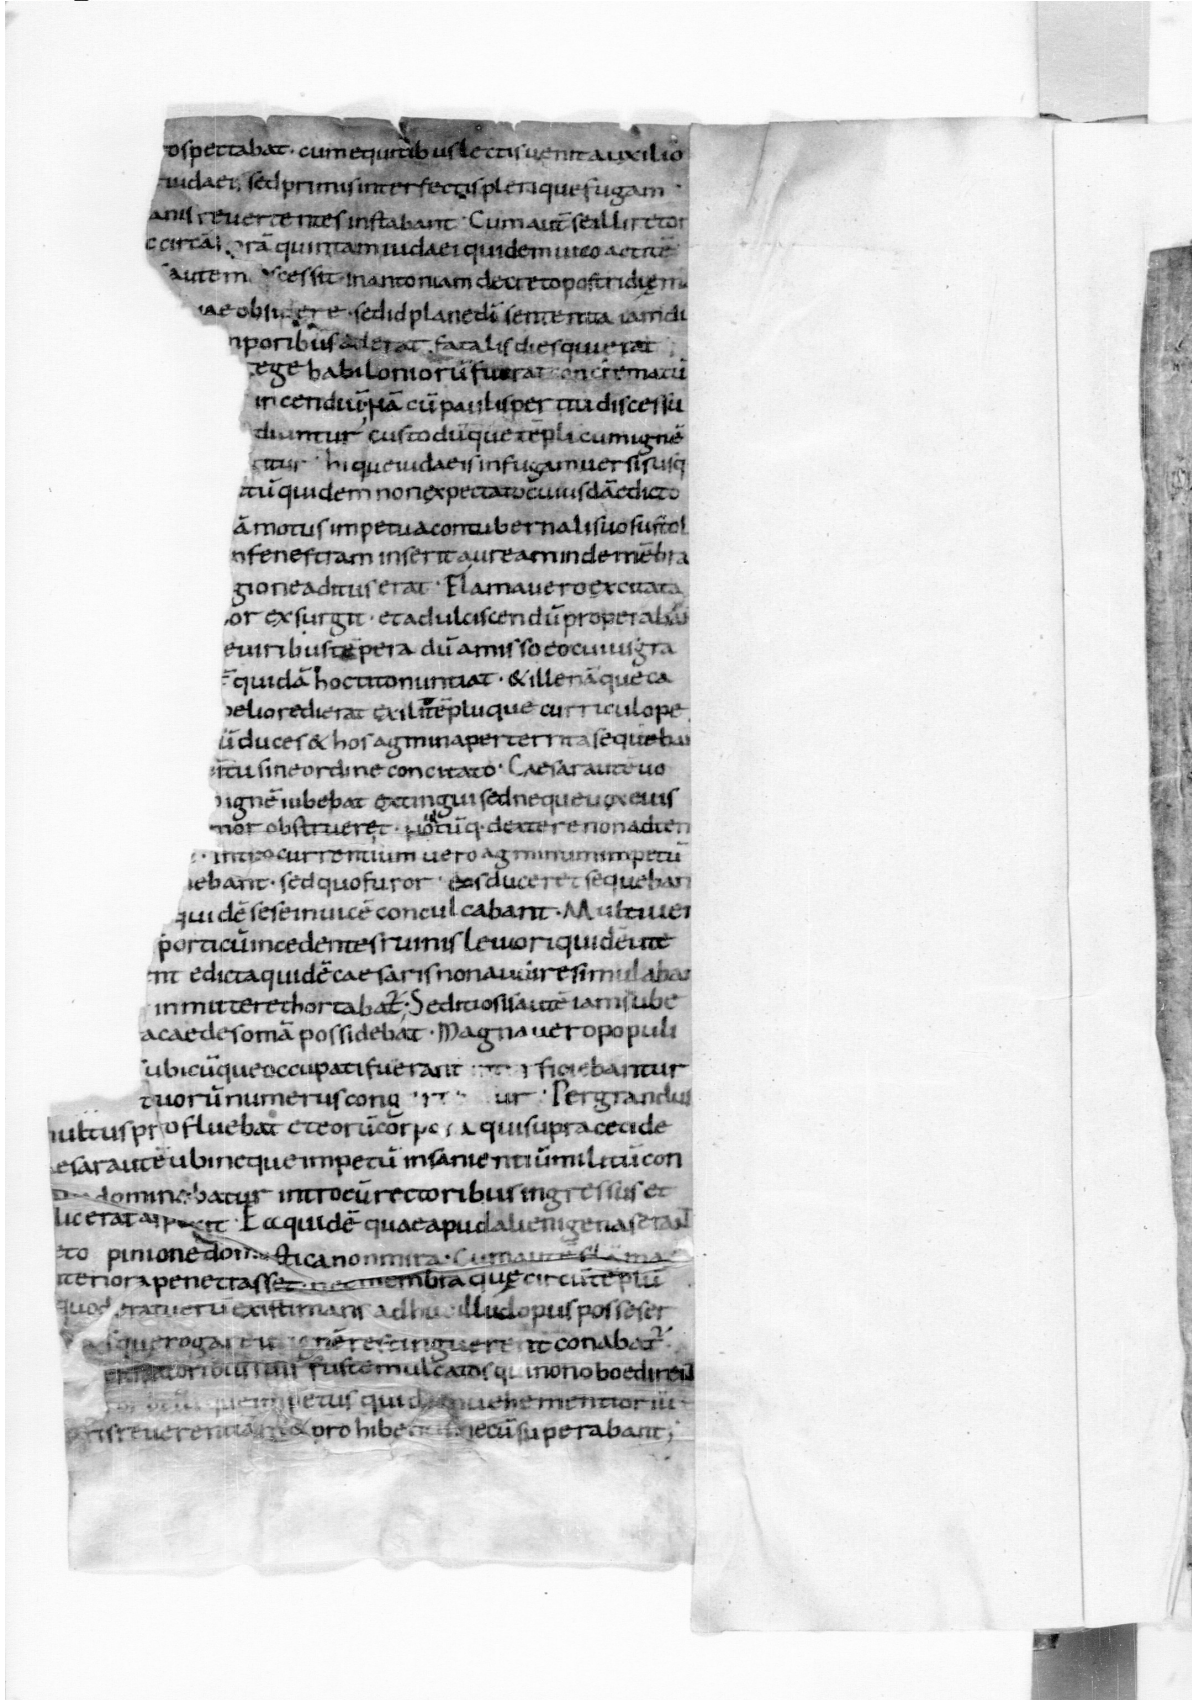 ospectabat · cum equitibus lectis uenit auxilio
iudaei, sed primis interfectis plerique fugam
anis reuertentes instabant · Cum aut̄ se illi retor
c circā horā quintam iudaei quidem
autem scessit in antoniam decreto postridiem
ae obsidere · sed id plane dī sententia iam di
nporibus aderat fatalis dies qui erat
ege babiloniorū fuerat concrematū
incendiū · nā cū paulisper titi discessu
diuntur custodiūque tēpli cum ignē
citur · hi que iudaeis in fugam uersis usq
tū quidem non expectato cuiusdā edicto
ā motus impetu a contubernali suo sustol
n fenestram inserit auream inde mēbra
gione aditus erat · Flama uero excitata
or exsurgit · et ad ulciscendū properaba
e uiribus tēpera dū amisso eo cuius gra
quidā hoc tito nuntiat · & ille nāque ca
belio redierat exilit tēpluque curriculo pe
ū duces & hos agmina perterrita sequeba
itu sine ordine concitato · Caesar autē uo
ignē iubebat extingui sed neque uox eius
mor obstrueret · nōtūq · dextere non adten
· introcurrentium uero agminum impetū
ebant · sed quo furor eos duceret sequeban
quidē sese inuicē conculcabant · Multi uer
porticū incedentes ruinis leuiori quidē
nt edicta quidē caesaris non audire simulaba
inmitteret hortabat̄ · Seditiosis autē iam sube
a caedes omā possidebat · Magna uero populi
ubicūque occupati fuerant interficiebantur
tuorū numerus cong r ur · Pergrandus
multus profluebat et eorū corpora qui supra cecide
esar autē ubi neque impetū insanientiū militū con
dominabatur introcū rectoribus ingressus et
licerat aspexit · Et quidē quae apud alienigenas erat
eto pinione domestica non mira · Cum autē flāma
nteriora penetrasset · nec membra quę circū tēplū
quod erat uerū existimans adhuc illud opus posse ser
sque rogare ut ignē restinguerent conabat̄ ·
fuste mulcatos qui non oboedirent
impetus quidem uehementior
ris reuerentiam & prohibentis metū superabant ;